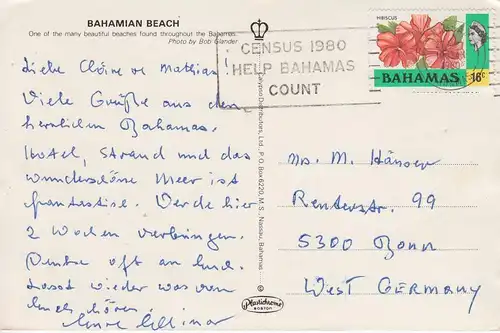 BAHAMIAN BEACH
One of the many beautiful beaches found throughout the Bahamas.
Photo by Bob Glander
CENSUS 1980
HELP BAHAMAS
COUNT
HIBISCUS
BAHAMAS 16c
Liebe Claire u Mathias!
Viele Grüße aus den
herrlichen Bahamas.
Hotel, Strand und das
wunderschöne Meer ist
fantastisch. Werde hier
2 Wochen verbringen.
Denke oft an Euch.
Lasst wieder was von
Euch hören
Eure
Calypso Distributors, Ltd., P.O. Box 6220, M.S., Nassau, Bahamas
Ms. M. Hänsen
Renterstr. 99
5300 Bonn
WEST GERMANY
Plastichrome
BOSTON